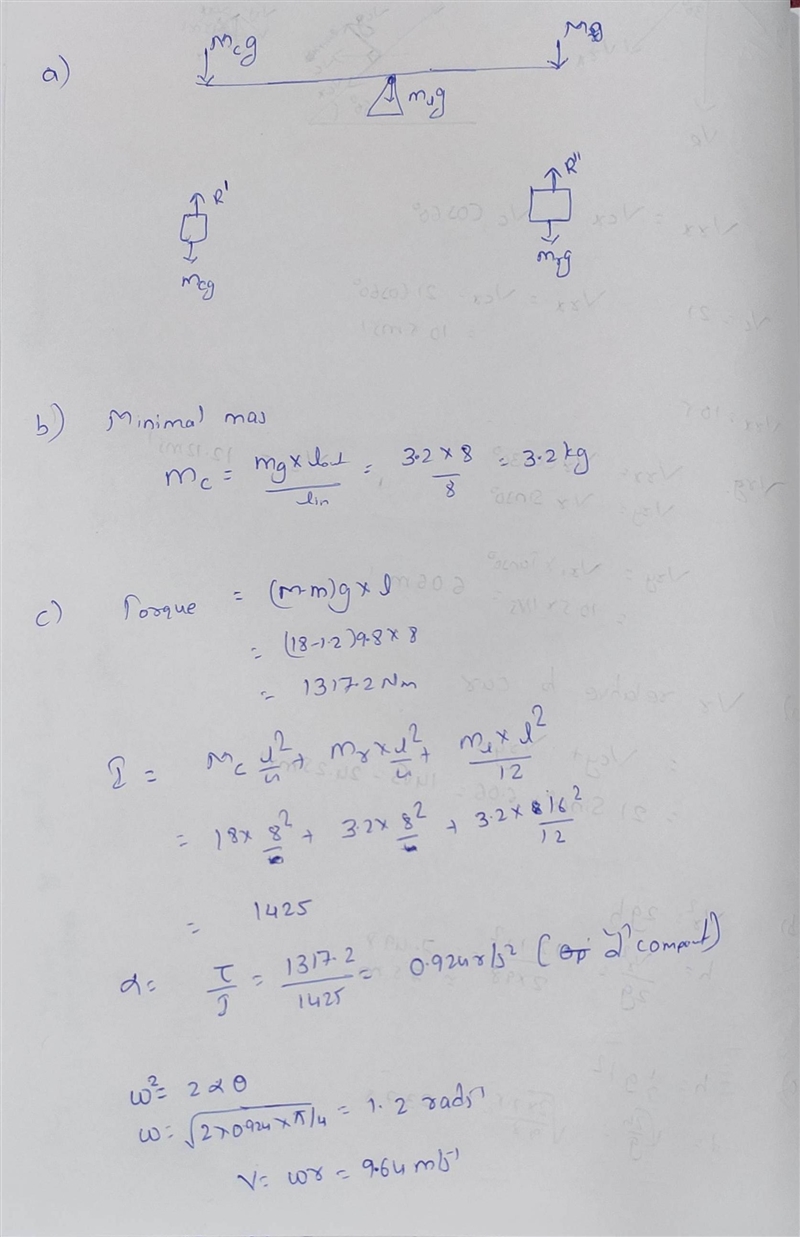 a)
Mcg
Mg
mlg
R'
mcg
R"
mrg
b) Minimal mas
mc = mg x lout / lin = 3.2 x 8 / 8 = 3.2 kg
c) Torque = (M-m)g x l
= (18-1.2)9.8 x 8
= 1317.2 Nm
I = Mc l²/4 + Mr x l²/4 + Ml x l²/12
= 18 x 8² + 3.2 x 8² + 3.2 x 16²/12
= 1425
α = τ/I = 1317.2/1425 = 0.924 r/s² ( compart)
ω² = 2αθ
ω = √2x0.924xπ/4 = 1.2 rads⁻¹
V = ωr = 9.64 m/s⁻¹